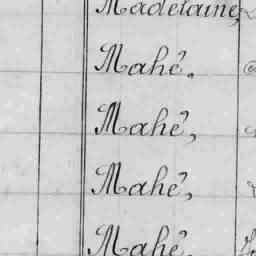 Madelaine,
Mahé.
Mahé,
Mahé,
Mahé,